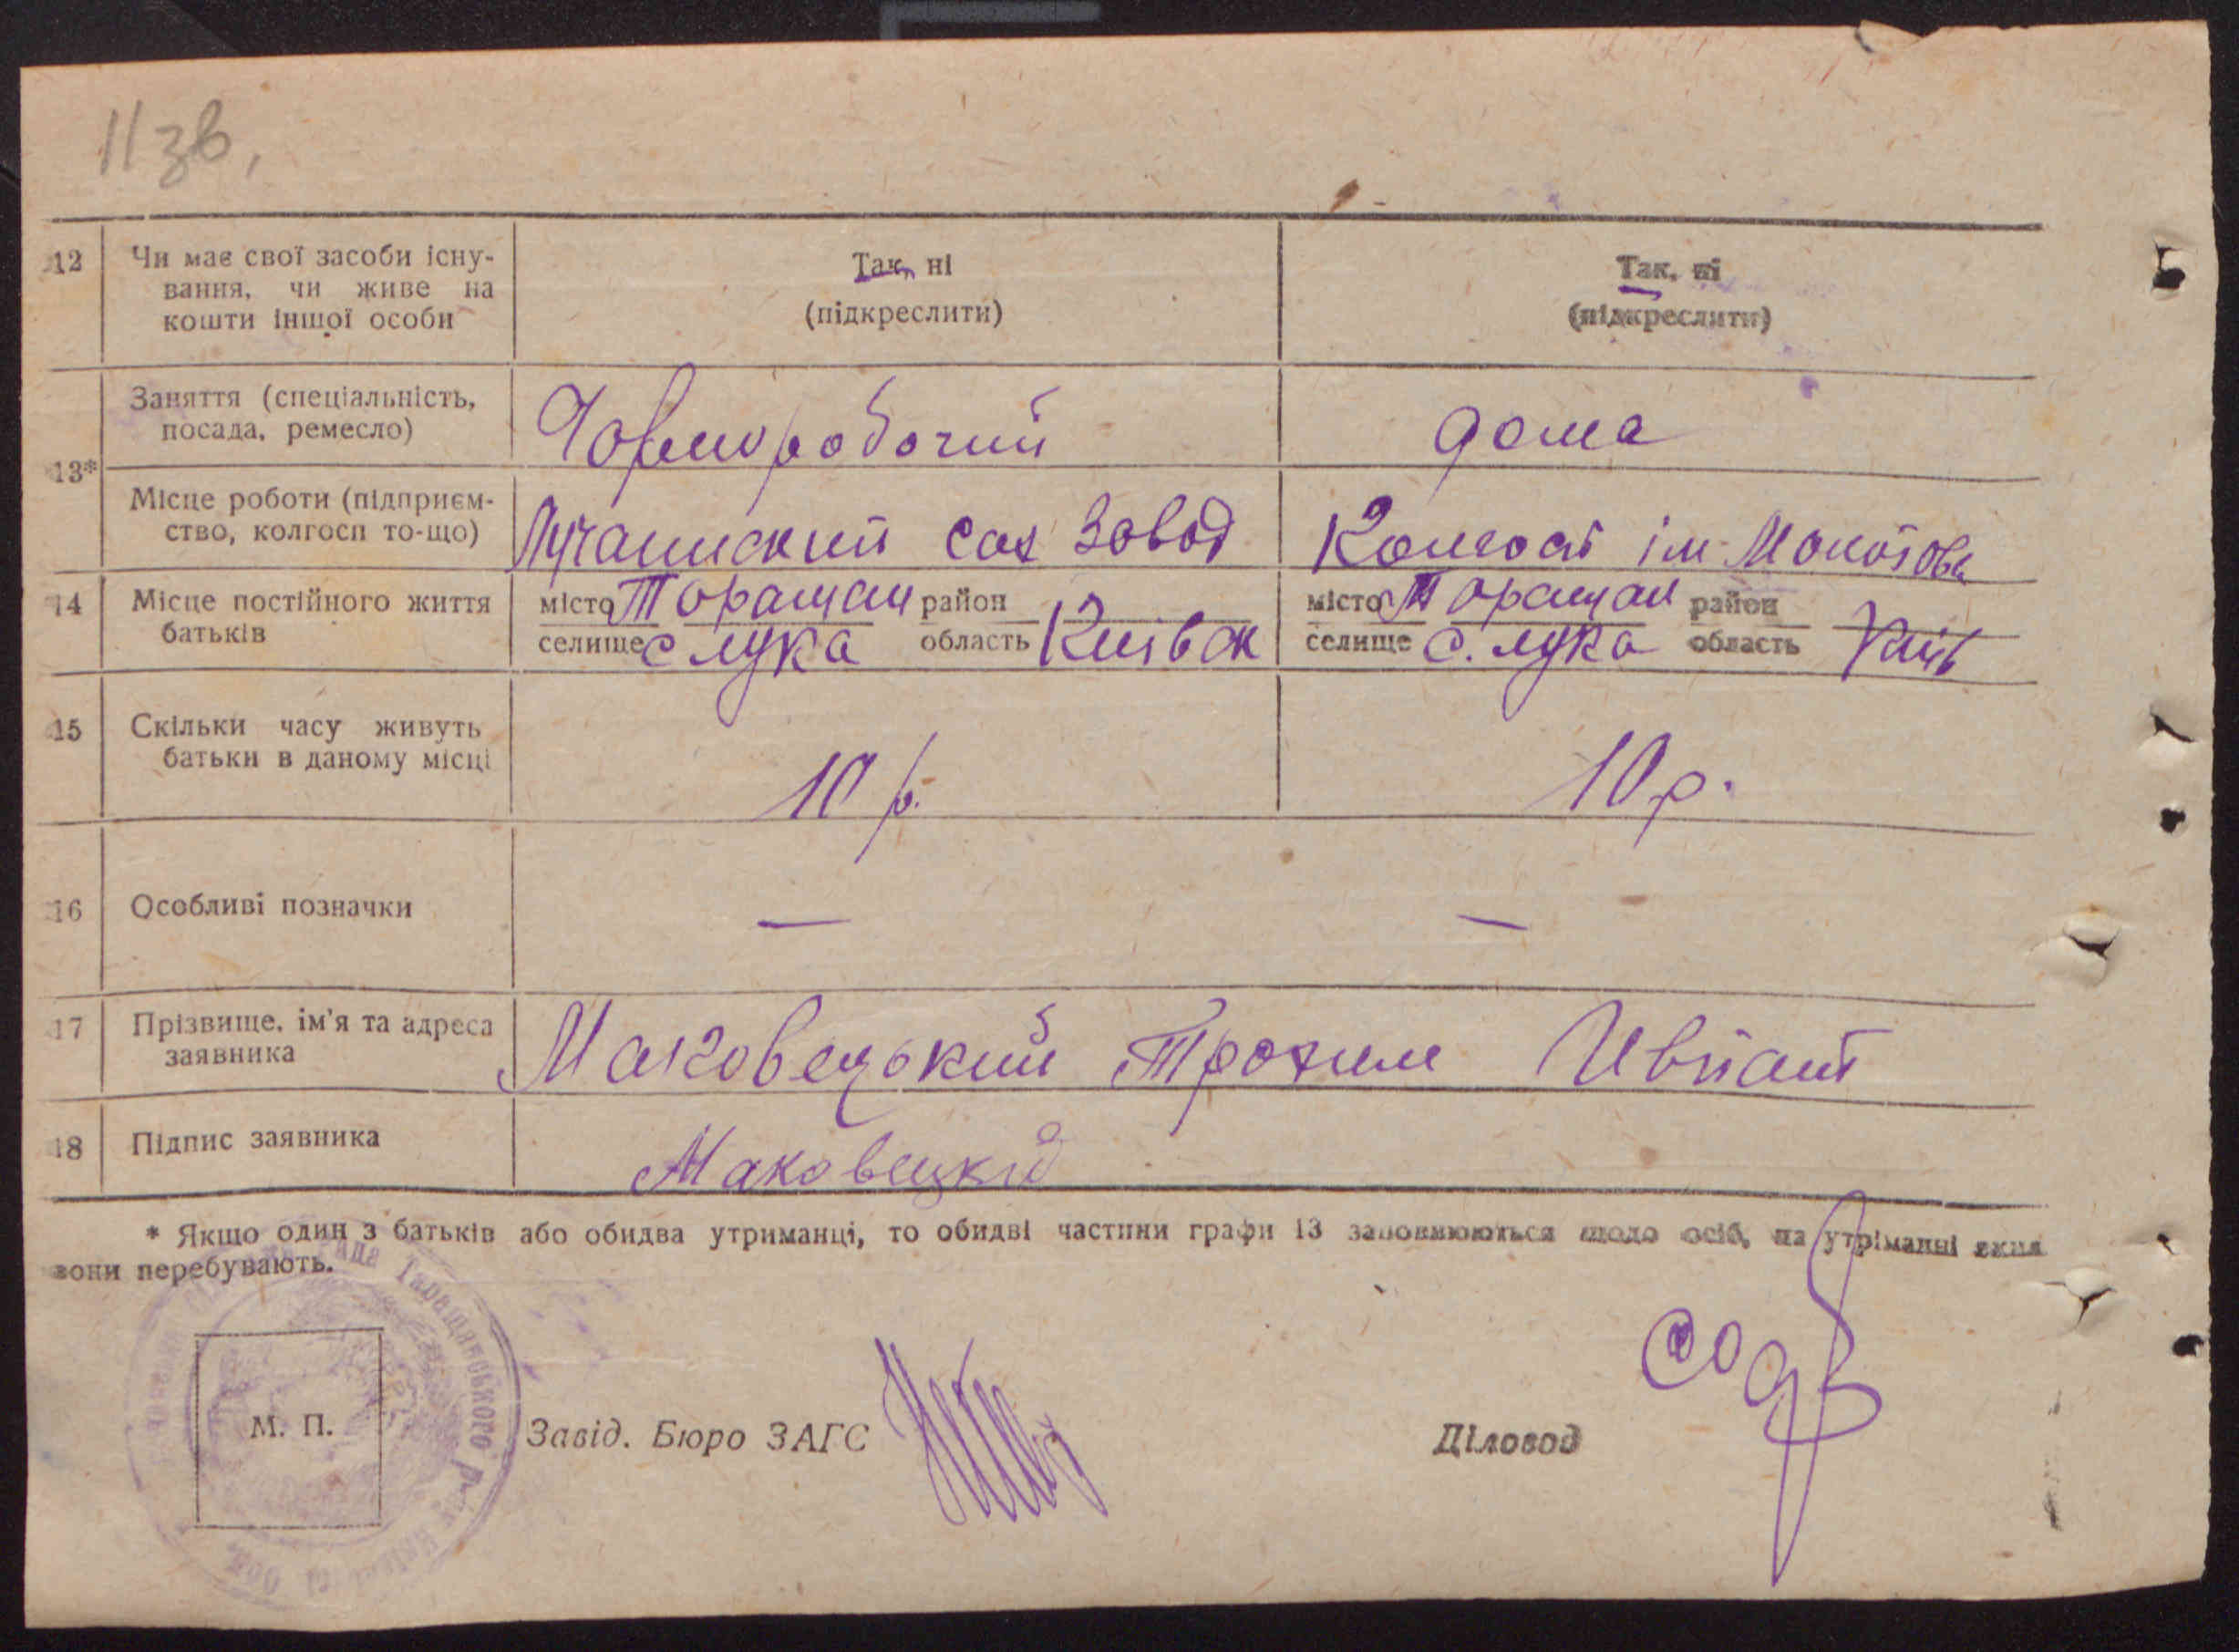 11зв,
12 Чи має свої засоби існу-
вання, чи живе на
кошти іншої особи
Так, ні
(підкреслити)
Так, ні
(підкреслити)
13*
Заняття (спеціальність,
посада, ремесло)
Чорноробочий
дома
Місце роботи (підприєм-
ство, колгосп то-що)
Лучанский сах завод
Колгосп ім Молотова
14 Місце постійного життя
батьків
місто Торащан район
селище с лука область Київск
місто Торащан район
селище с. лука область Київ
15 Скільки часу живуть
батьки в даному місці
10 р.
10 р.
16 Особливі позначки
—
—
17 Прізвище, ім'я та адреса
заявника
Маковецький Трохим
18 Підпис заявника
Маковецкий
* Якщо один з батьків або обидва утриманці, то обидві частини графи 13 заповнюються щодо осіб, на утріманні яких
вони перебувають.
Рада Таращанського
М. П.
Завід. Бюро ЗАГС
Діловод